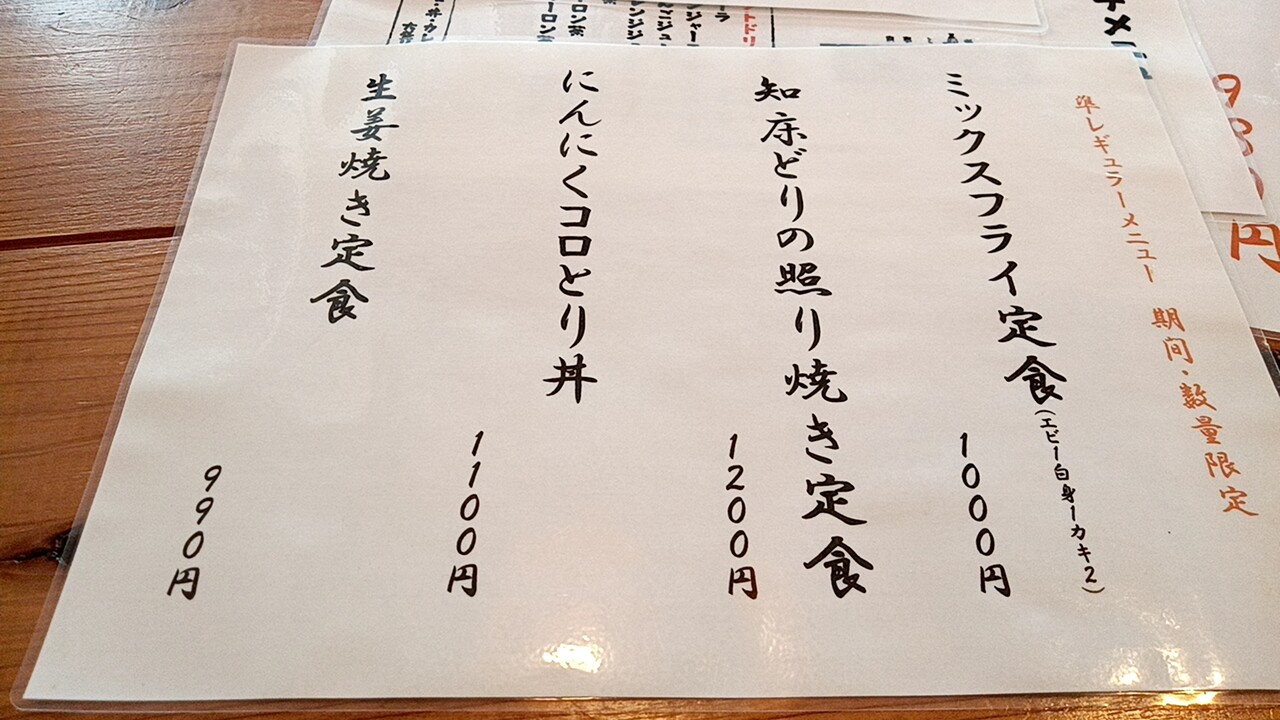 準レギュラーメニュー 期間・数量限定
ミックスフライ定食(エビ1白身1カキ2)
1000円
知床どりの照り焼き定食
1200円
にんにくコロとり丼
1100円
生姜焼き定食
990円
980円